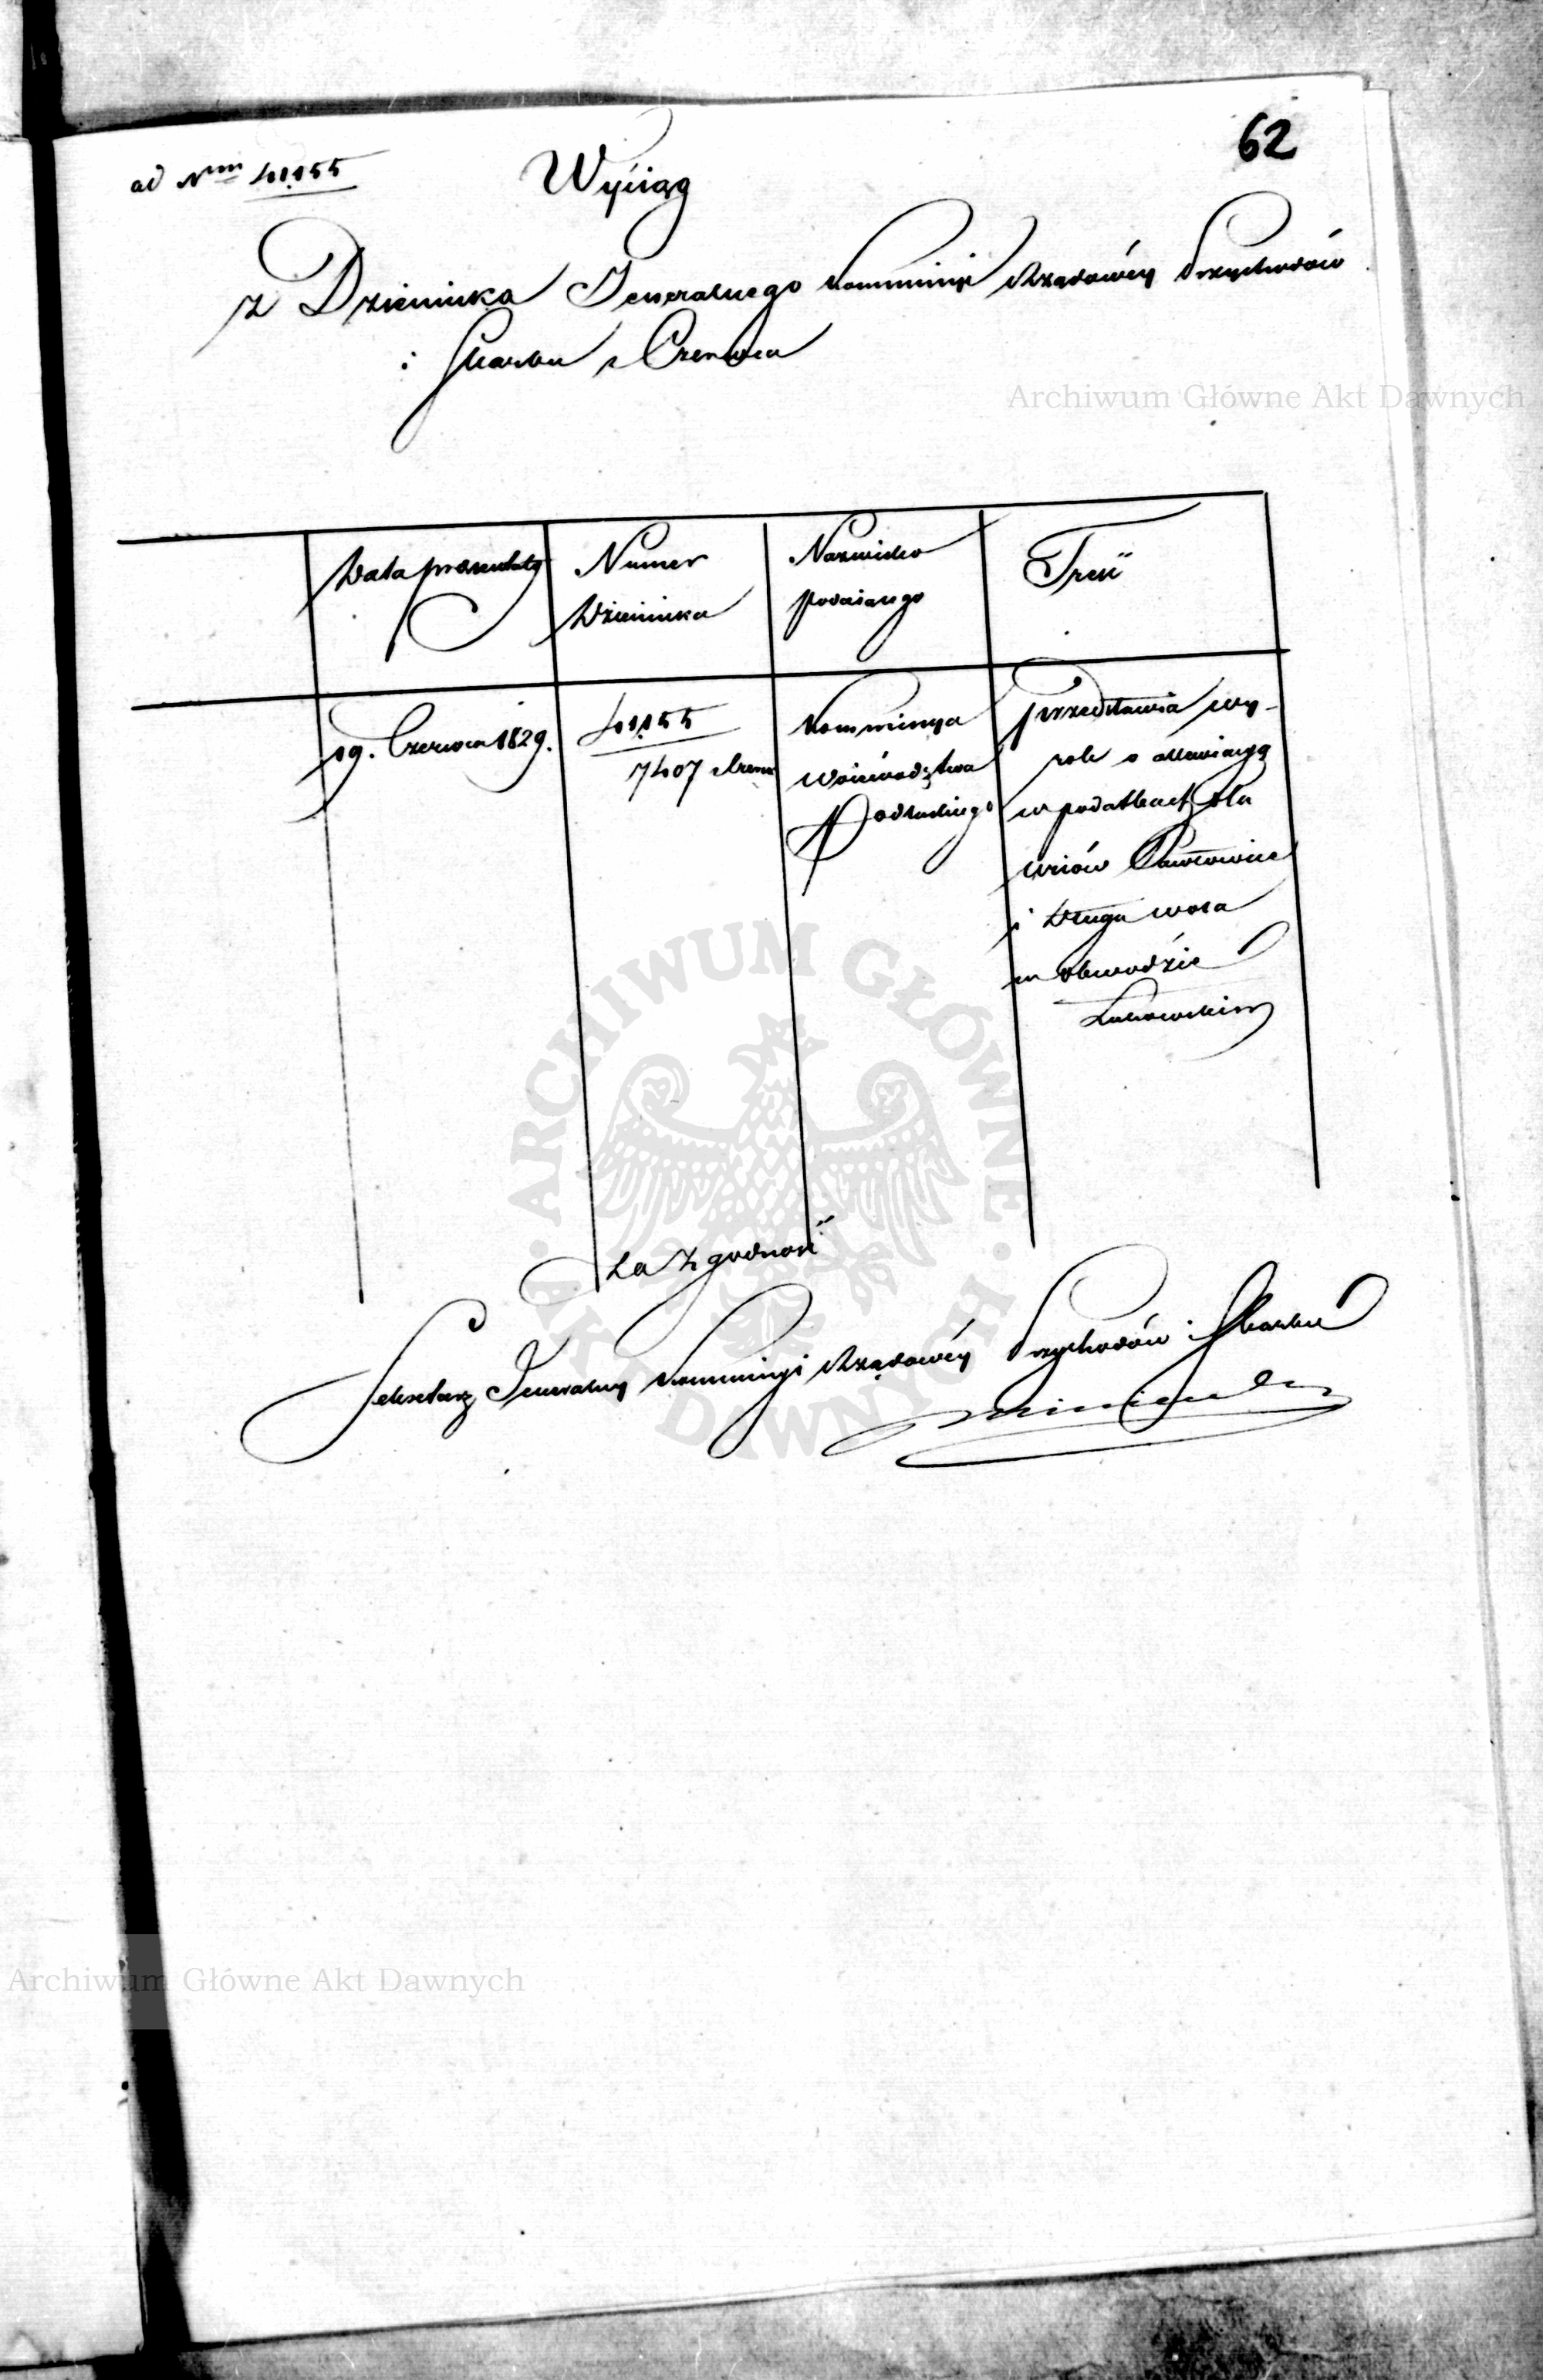 62
ad Nrm 41155
Wyciąg
z Dziennika Generalnego Kommissyi Rządowéy Przychodów
i Skarbu z Czerwca
Archiwum Główne Akt Dawnych
Data prezentaty
Numer
Dziennika
Nazwisko
Podaiącego
Treść
19. Czerwca 1829.
41155
7407
Kommissya
Woiewództwa
Podlaskiego
przedstawia wy-
kaz o allewiacyą
w podatkach dla
wsiów Pawłowice
i Długa wola
w obwodzie
Łukowskim
ARCHIWUM GŁÓWNE AKT DAWNYCH
Za Zgodność
Sekretarz Generalny Kommissyi Rządowéy Przychodów i Skarbu
Archiwum Główne Akt Dawnych